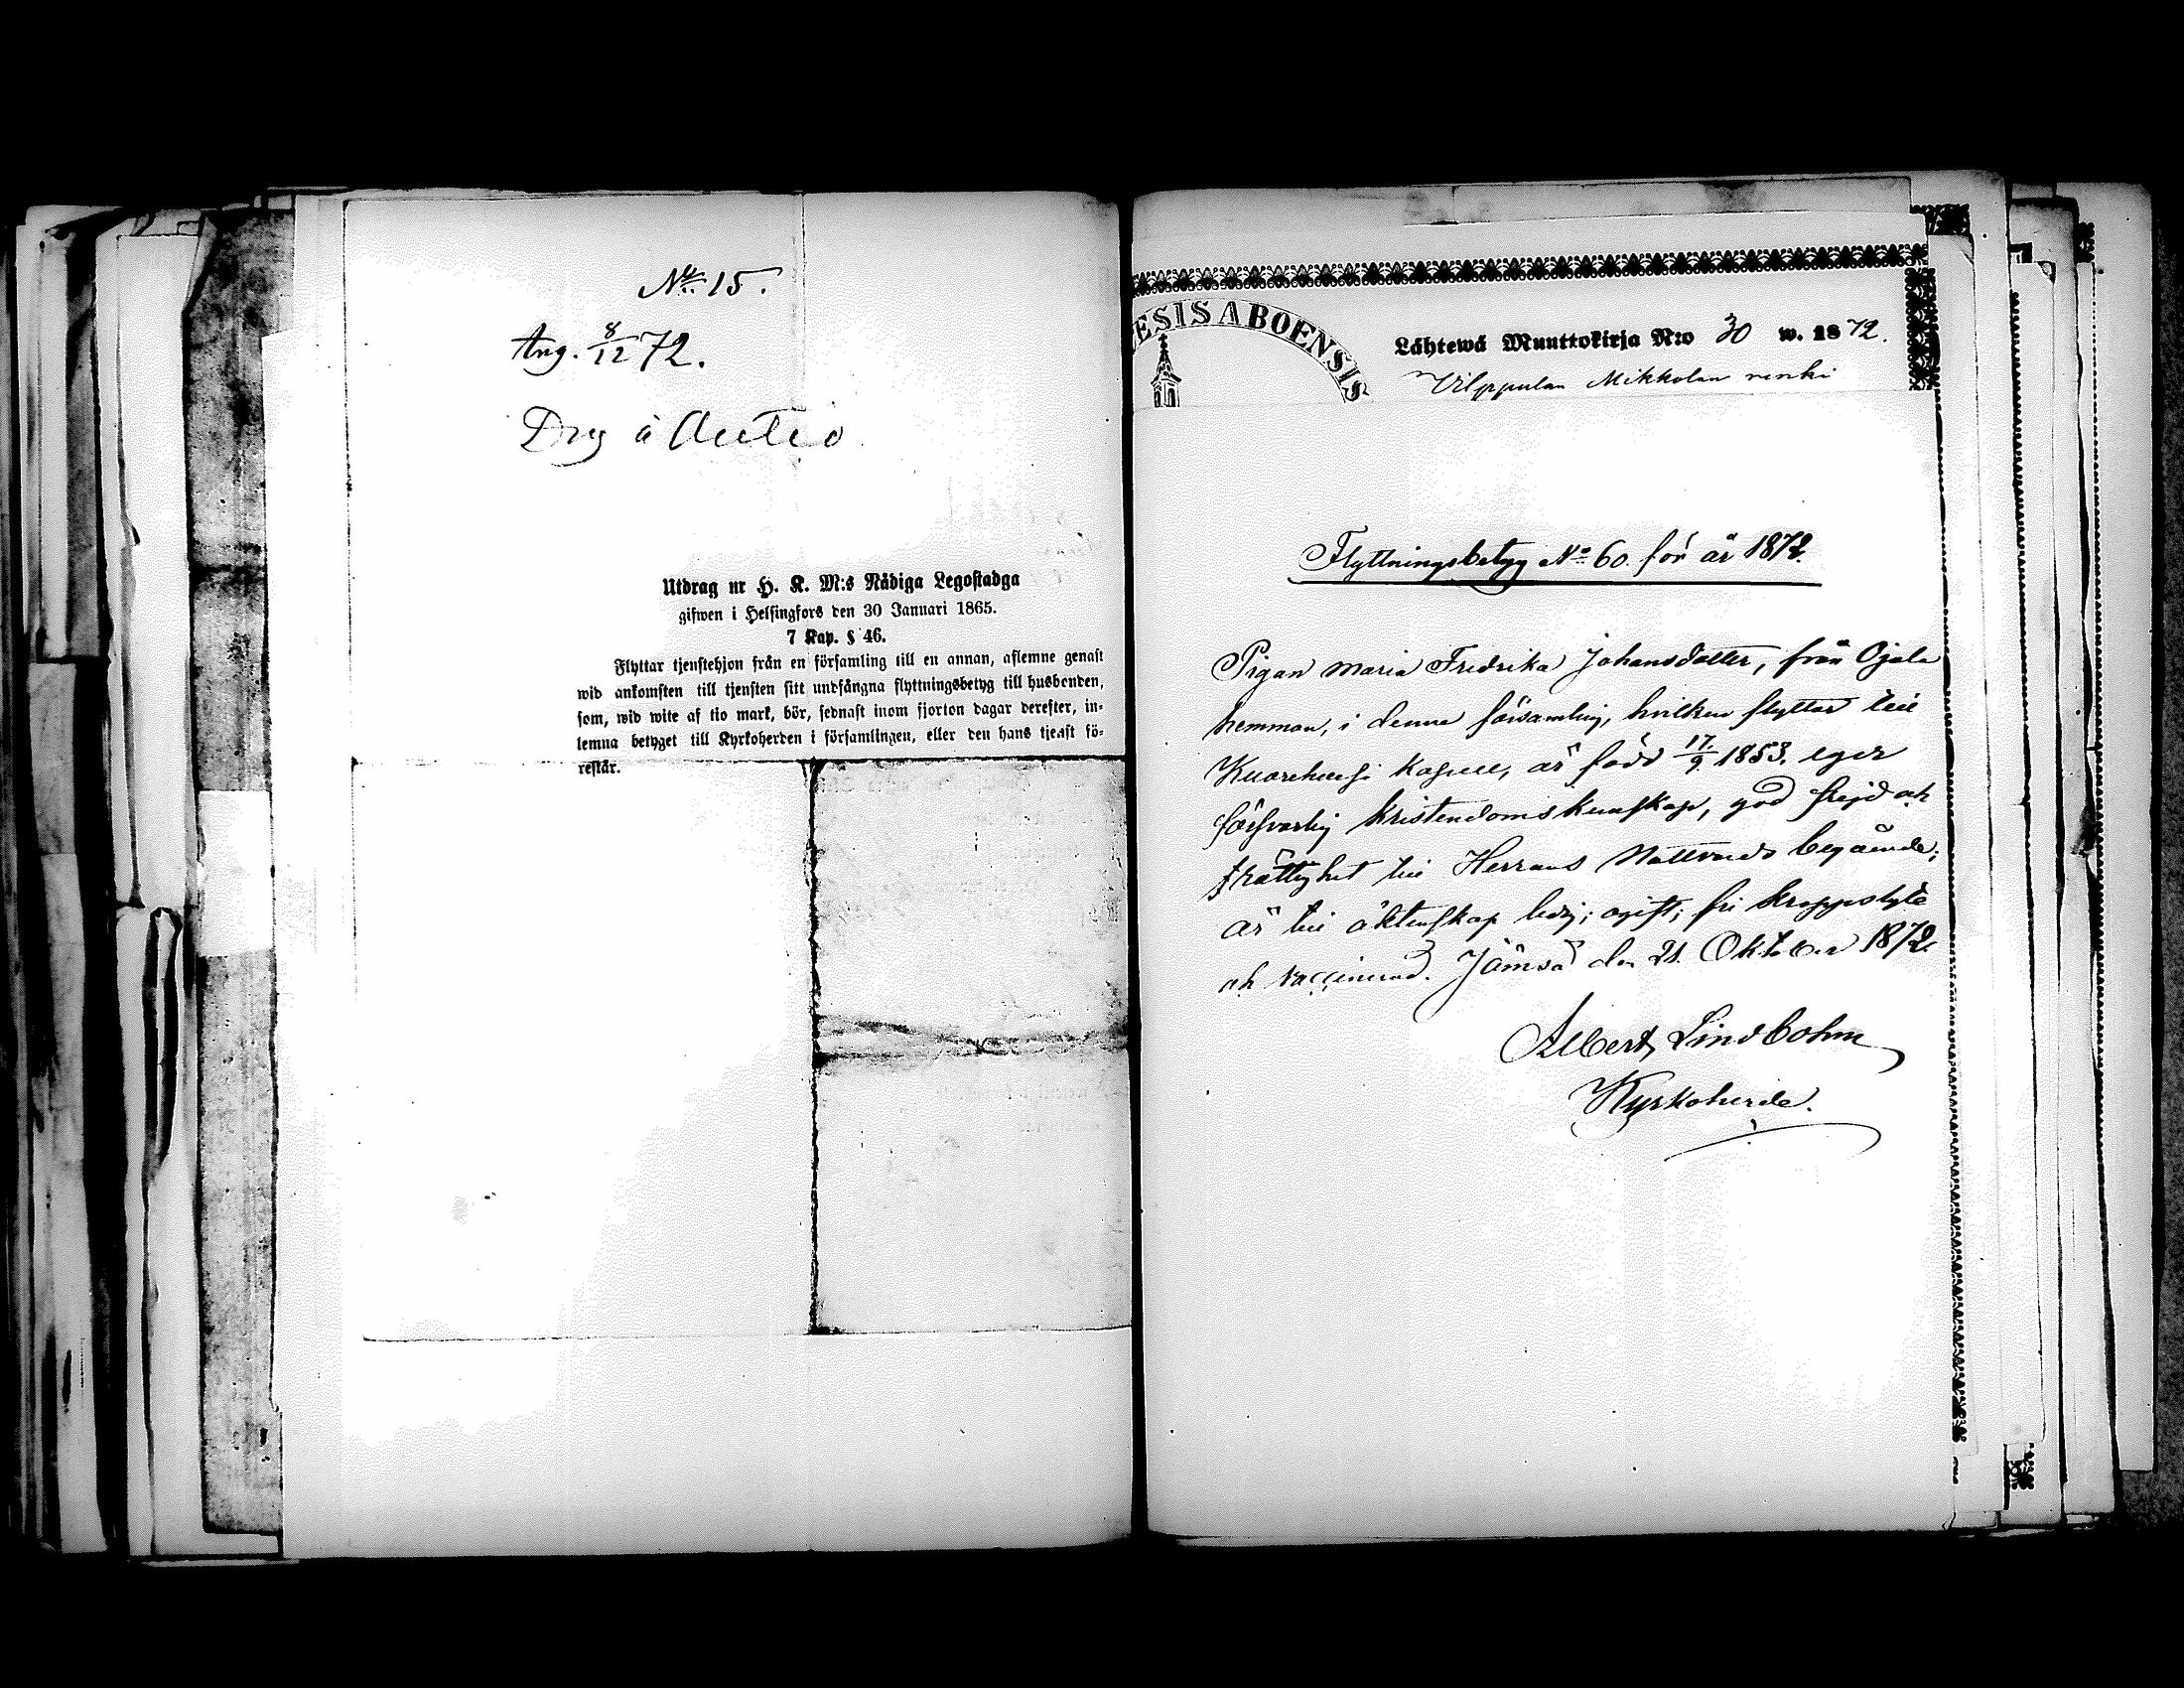 No 15.
Ang. 8/12 72.
Drg å Autio
Utdrag ur H. K. M:s Nådiga Legostadga
gifwen i Helsingfors den 30 Januari 1865.
7 Kap. § 46.
Flyttar tjenstehjon från en församling till en annan, aflemne genast
wid ankomsten till tjensten sitt undfångna flyttningsbetyg till husbonden,
som, wid wite af tio mark, bör, sednast inom fjorton dagar derefter, in-
lemna betyget till Kyrkoherden i församlingen, eller den hans tjenst fö-
restår.
ESIS ABOENSIS
Lähtewä Muuttokirja N:o 30 w. 1872.
Vilppulan Mikkolan renki
Flyttningsbetyg No 60. för år 1872.
Pigan Maria Fredrika Johansdotter, från Ojala
hemman, i denna församling, hvilken flyttar till
Kuorehvesi kapell, är född 17/9 1853. eger
försvarlig kristendomskunskap, god frejd och
rättighet till Herrans Nattvards begående;
är till äktenskap ledig; ogift; fri kroppslyte
och vaccinerad. Jämsä den 21. Oktober 1872.
Albert Lindbohm
Kyrkoherde.